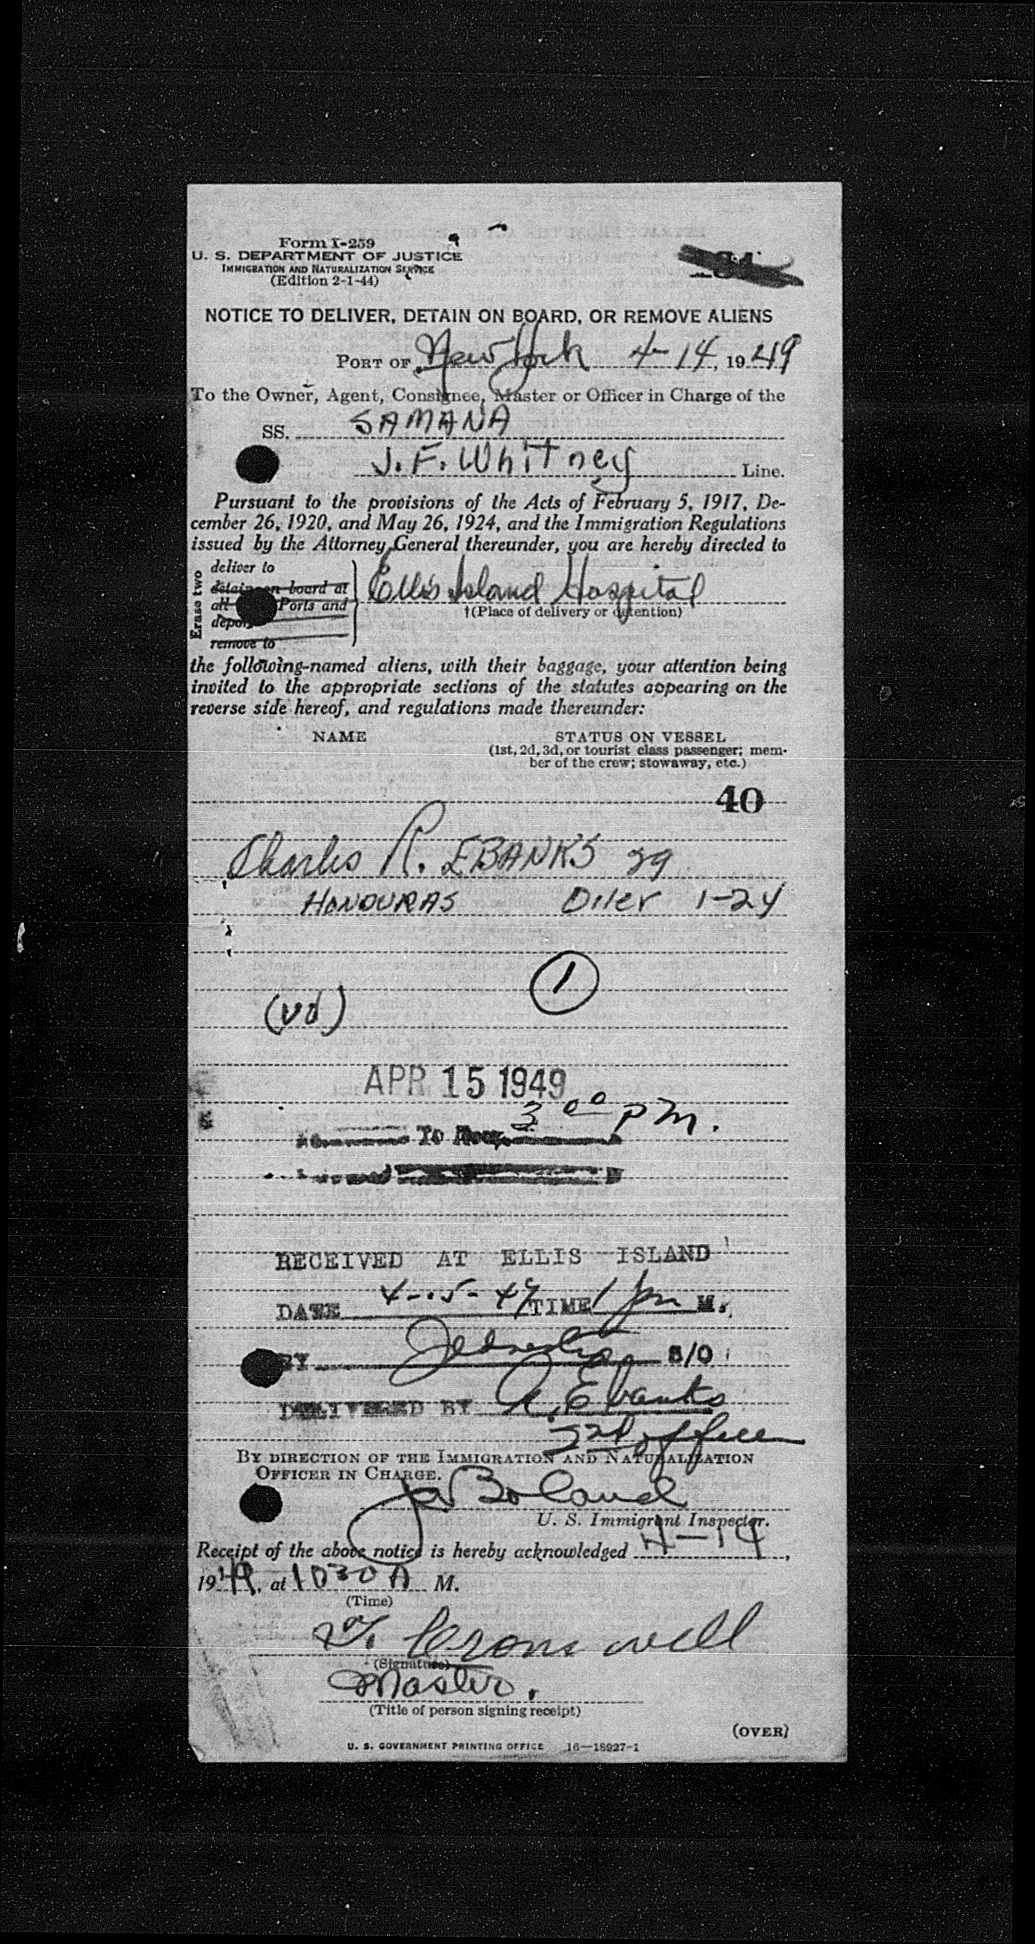 Form I-259
U. S. DEPARTMENT OF JUSTICE
IMMIGRATION AND NATURALIZATION SERVICE
(Edition 2-1-44)
NOTICE TO DELIVER, DETAIN ON BOARD, OR REMOVE ALIENS
PORT OF New York 4-14, 1949
To the Owner, Agent, Consignee, Master or Officer in Charge of the
SS. SAMANA
J. F. Whitney Line.
Pursuant to the provisions of the Acts of February 5, 1917, De-
cember 26, 1920, and May 26, 1924, and the Immigration Regulations
issued by the Attorney General thereunder, you are hereby directed to
Erase two
deliver to
detain on board at
all Ports and
remove to
Ellis Island Hospital
†(Place of delivery or detention)
the following-named aliens, with their baggage, your attention being
invited to the appropriate sections of the statutes appearing on the
reverse side hereof, and regulations made thereunder:
NAME STATUS ON VESSEL
(1st, 2d, 3d, or tourist class passenger; mem-
ber of the crew; stowaway, etc.)
40
Charles R. EBANKS 29
HONDURAS Oiler 1-24
1
(vd)
APR 15 1949
3 00 PM.
To
RECEIVED AT ELLIS ISLAND
DATE 4-15-49 TIME 1 pm M.
BY S/O
DELIVERED BY A. Ebanks
2nd officer
BY DIRECTION OF THE IMMIGRATION AND NATURALIZATION
OFFICER IN CHARGE.
Boland
U. S. Immigrant Inspector.
Receipt of the above notice is hereby acknowledged 4-14,
1949, at 1030 A M.
(Time)
T. Cromwell
(Signature)
Master.
(Title of person signing receipt)
(OVER)
U. S. GOVERNMENT PRINTING OFFICE 16-18927-1